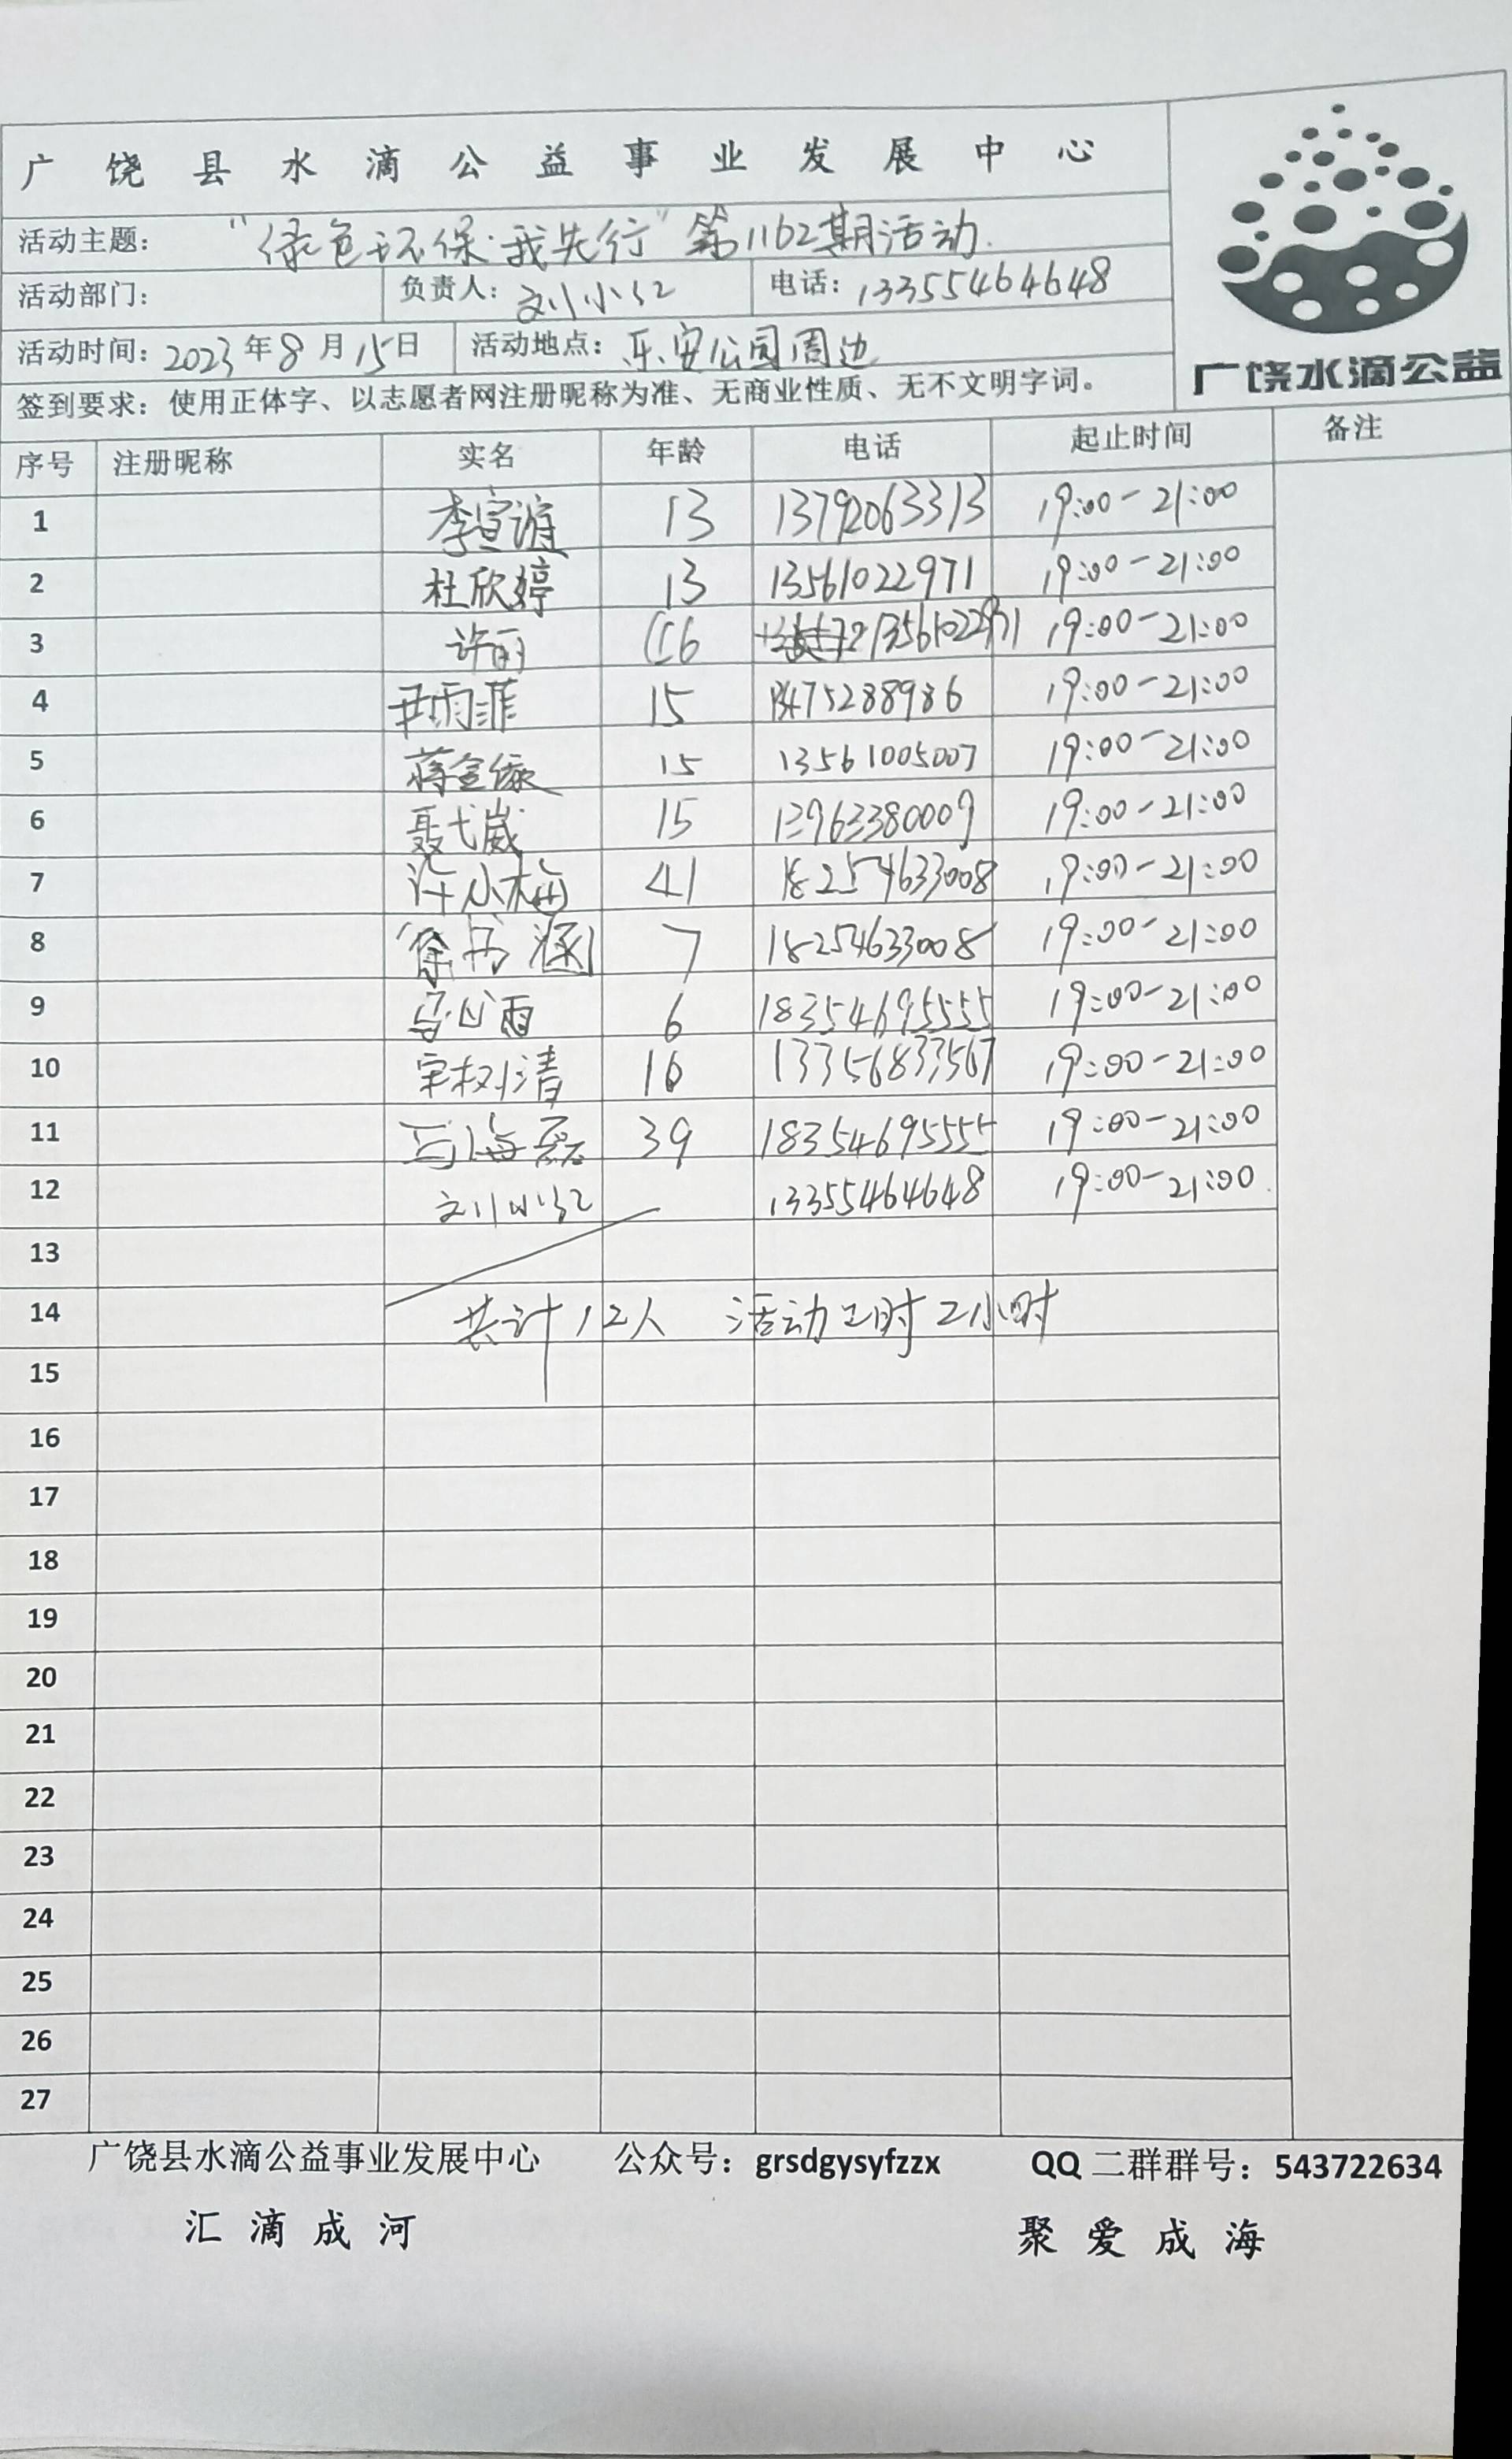 广饶县水滴公益事业发展中心
广饶水滴公益
活动主题： “绿色环保·我先行”第1162期活动
活动部门： 负责人：刘小红 电话：13355464648
活动时间：2023年8月15日 活动地点：乐安公园周边
签到要求：使用正体字、以志愿者网注册昵称为准、无商业性质、无不文明字词。
序号 注册昵称 实名 年龄 电话 起止时间 备注
1 李宣谊 13 13792063313 19:00-21:00
2 杜欣婷 13 13561022971 19:00-21:00
3 许丽 13561022971 19:00-21:00
4 尹雨菲 15 19:00-21:00
5 蒋金 15 13561005007 19:00-21:00
6 聂弋崴 15 13963380009 19:00-21:00
7 许小梅 41 18254633008 19:00-21:00
8 徐书涵 7 18254633008 19:00-21:00
9 雨 6 18354695555 19:00-21:00
10 宋树清 16 13356833567 19:00-21:00
11 马海磊 39 18354695555 19:00-21:00
12 刘小红 13355464648 19:00-21:00
13
14 共计12人 活动工时2小时
15
16
17
18
19
20
21
22
23
24
25
26
27
广饶县水滴公益事业发展中心 公众号：grsdgysyfzzx QQ二群群号：543722634
汇滴成河 聚爱成海